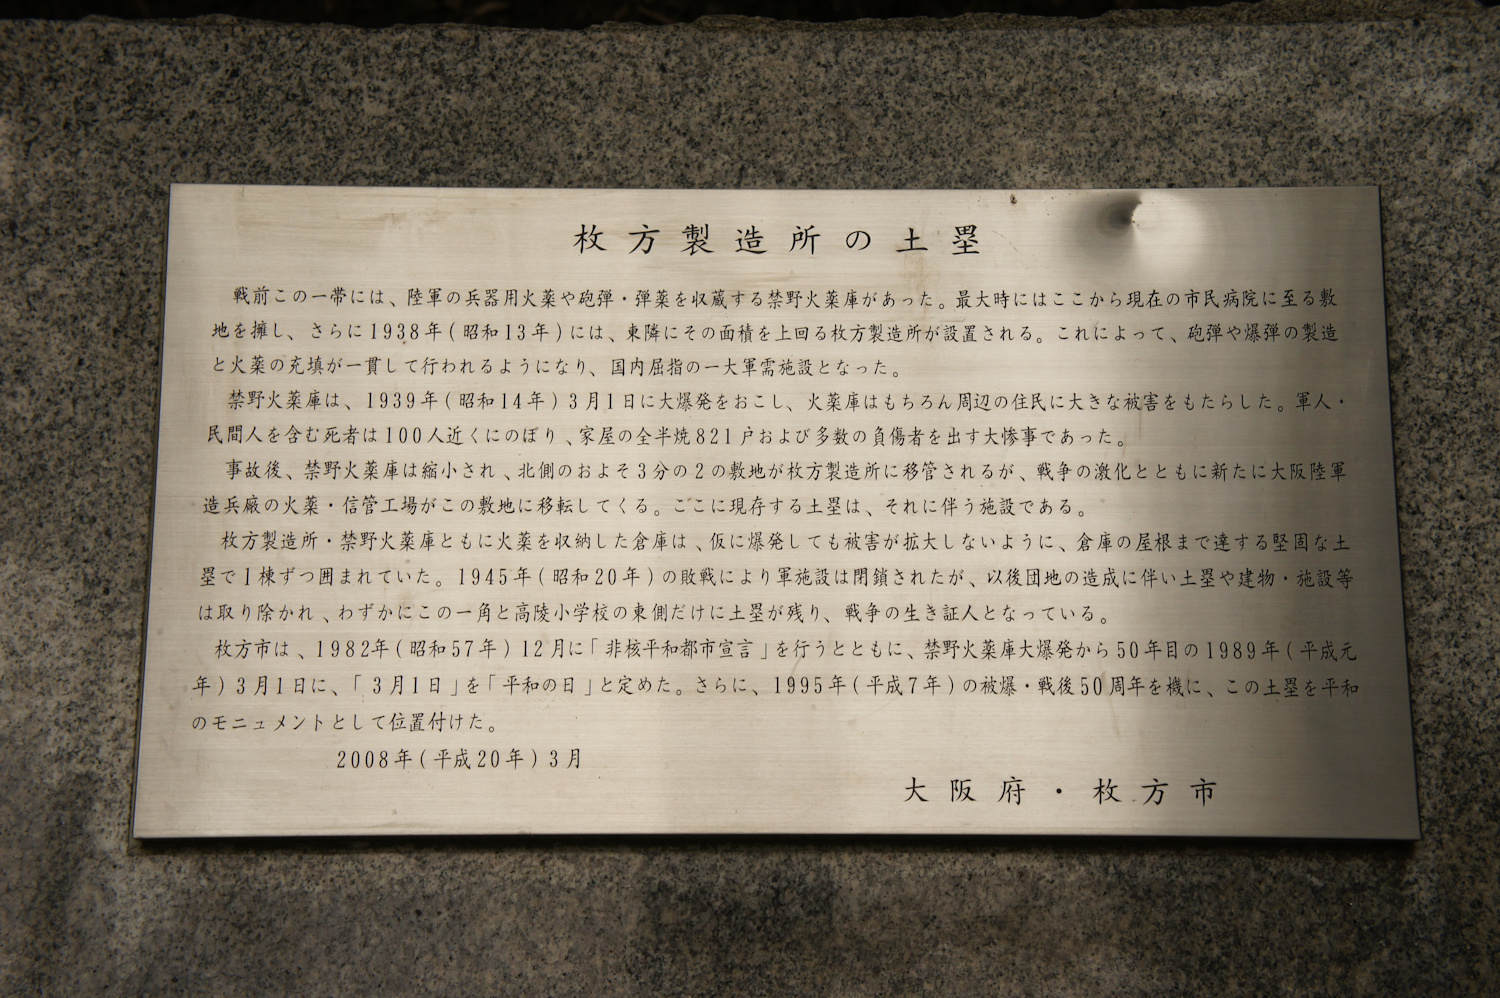 枚方製造所の土塁
戦前この一帯には、陸軍の兵器用火薬や砲弾・弾薬を収蔵する禁野火薬庫があった。最大時にはここから現在の市民病院に至る敷
地を擁し、さらに1938年(昭和13年)には、東隣にその面積を上回る枚方製造所が設置される。これによって、砲弾や爆弾の製造
と火薬の充填が一貫して行われるようになり、国内屈指の一大軍需施設となった。
禁野火薬庫は、1939年(昭和14年)3月1日に大爆発をおこし、火薬庫はもちろん周辺の住民に大きな被害をもたらした。軍人・
民間人を含む死者は100人近くにのぼり、家屋の全半焼821戸および多数の負傷者を出す大惨事であった。
事故後、禁野火薬庫は縮小され、北側のおよそ3分の2の敷地が枚方製造所に移管されるが、戦争の激化とともに新たに大阪陸軍
造兵廠の火薬・信管工場がこの敷地に移転してくる。ここに現存する土塁は、それに伴う施設である。
枚方製造所・禁野火薬庫ともに火薬を収納した倉庫は、仮に爆発しても被害が拡大しないように、倉庫の屋根まで達する堅固な土
塁で1棟ずつ囲まれていた。1945年(昭和20年)の敗戦により軍施設は閉鎖されたが、以後団地の造成に伴い土塁や建物・施設等
は取り除かれ、わずかにこの一角と高陵小学校の東側だけに土塁が残り、戦争の生き証人となっている。
枚方市は、1982年(昭和57年)12月に「非核平和都市宣言」を行うとともに、禁野火薬庫大爆発から50年目の1989年(平成元
年)3月1日に、「3月1日」を「平和の日」と定めた。さらに、1995年(平成7年)の被爆・戦後50周年を機に、この土塁を平和
のモニュメントとして位置付けた。
2008年(平成20年)3月
大阪府・枚方市